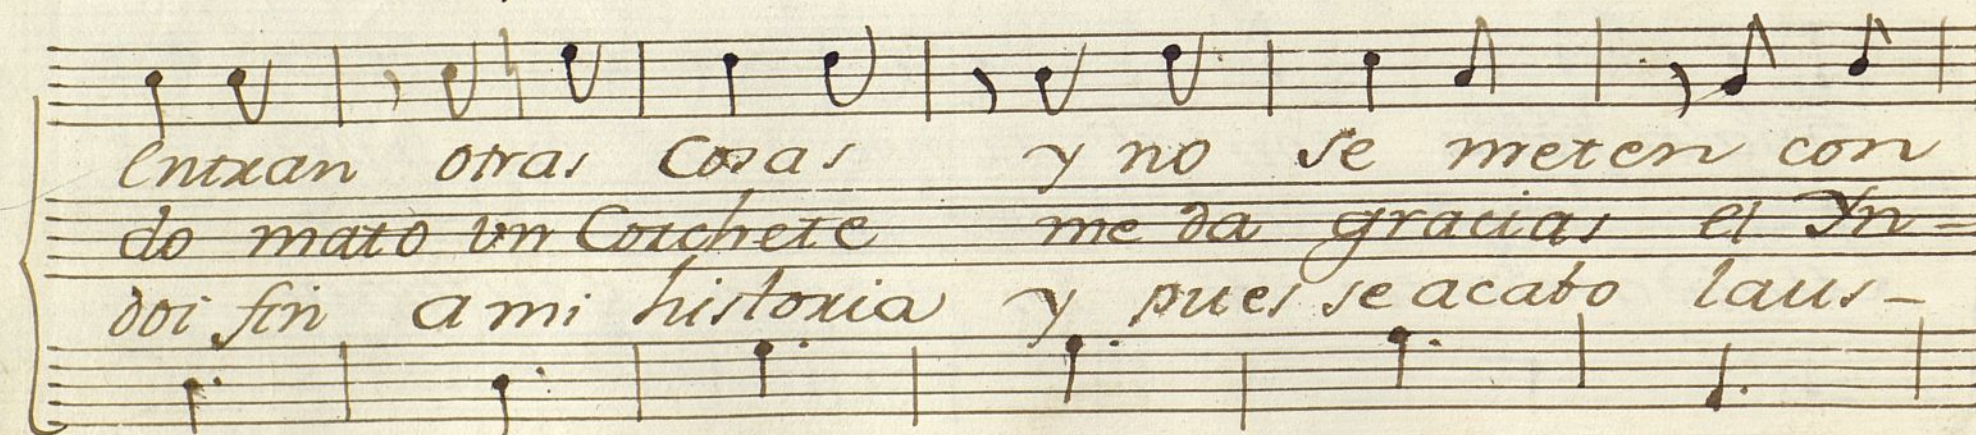 entran otras cosas y no se meten con
do mato vn Corchete me da gracias el Yn=
doi fin a mi historia y pues se acabo laus-